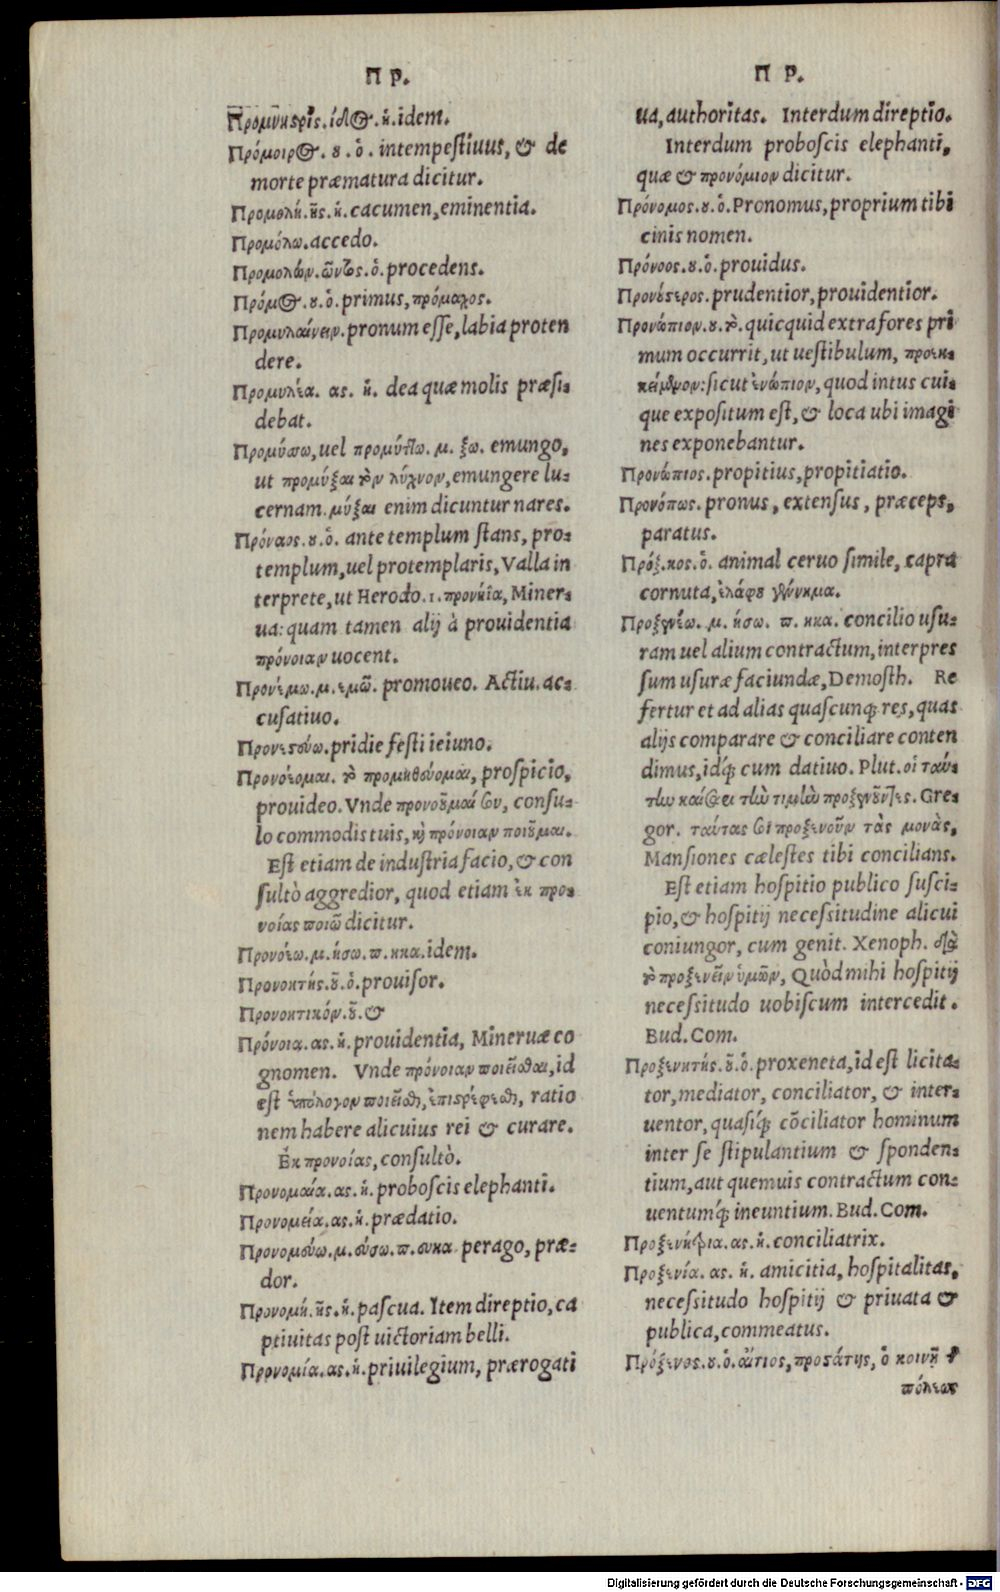 Π Ρ.
Προμνηστρὶς. ίδος. ἡ. idem.
Πρόμοιρος. ου. ὁ. intempestiuus, & de
morte præmatura dicitur.
Προμολή. ῆς. ἡ. cacumen, eminentia.
Προμόλω. accedo.
Προμολών. ῶντος. ὁ. procedens.
Πρόμος. ου. ὁ. primus, πρόμαχος.
Προμυλαίνειν. pronum esse, labia proten
dere.
Προμυλέα. ας. ἡ. dea quæ molis præsi-
debat.
Προμύσσω, uel προμύττω. μ. ξω. emungo,
ut προμύξαι τὸν λύχνον, emungere lu-
cernam. μύξαι enim dicuntur nares.
Πρόναος. ου. ὁ. ante templum stans, pro-
templum, uel protemplaris, Valla in
terprete, ut Herodo. ι. προνηΐα, Miner-
ua: quam tamen alij à prouidentia
πρόνοιαν uocent.
Προνέμω. μ. εμῶ. promoueo. Actiu. ac-
cusatiuo.
Προνεστεύω. pridie festi ieiuno.
Προνοέομαι. τὸ προμηθεύομαι, prospicio,
prouideo. Vnde προνοοῦμαί σου, consu-
lo commodis tuis, καὶ πρόνοιαν ποιοῦμαι.
Est etiam de industria facio, & con
sultò aggredior, quod etiam ἐκ προ-
νοίας ποιῶ dicitur.
Προνοέω. μ. ήσω. π. ηκα. idem.
Προνοητής. οῦ. ὁ. prouisor.
Προνοητικόν. οῦ. &
Πρόνοια. ας. ἡ. prouidentia, Mineruæ co
gnomen. Vnde πρόνοιαν ποιεῖσθαι, id
est ὑπόλογον ποιεῖσθαι, ἐπιστρέφεσθαι, ratio
nem habere alicuius rei & curare.
Ἐκ προνοίας, consultò.
Προνομαία. ας. ἡ. proboscis elephanti.
Προνομεία. ας. ἡ. prædatio.
Προνομεύω. μ. εύσω. π. ευκα. perago, præ-
dor.
Προνομή. ῆς. ἡ. pascua. Item direptio, ca
ptiuitas post uictoriam belli.
Προνομία. ας. ἡ. priuilegium, prærogati
Π Ρ.
ua, authoritas. Interdum direptio.
Interdum proboscis elephanti,
quæ & προνόμιον dicitur.
Πρόνομος. ου. ὁ. Pronomus, proprium tibi
cinis nomen.
Πρόνοος. ου. ὁ. prouidus.
Προνούστερος. prudentior, prouidentior.
Προνώπιον. ου. τὸ. quicquid extra fores pri
mum occurrit, ut uestibulum, προεκ-
κείμενον: sicut ἐνώπιον, quod intus cui-
que expositum est, & loca ubi imagi
nes exponebantur.
Προνώπιος. propitius, propitiatio.
Προνόπως. pronus, extensus, præceps,
paratus.
Πρόξ. κος. ὁ. animal ceruo simile, capra
cornuta, ἐλάφου γέννημα.
Προξενέω. μ. ήσω. π. ηκα. concilio usu-
ram uel alium contractum, interpres
sum usuræ faciundæ, Demosth. Re
fertur et ad alias quascunq; res, quas
alijs comparare & conciliare conten
dimus, idq́; cum datiuo. Plut. οἱ ταύ-
την καίσαρι τὴν τιμὴν προξενοῦντες. Gre-
gor. ταύτας σοὶ προξενοῦν τὰς μονὰς,
Mansiones cælestes tibi concilians.
Est etiam hospitio publico susci-
pio, & hospitij necessitudine alicui
coniungor, cum genit. Xenoph. διὰ
τὸ προξενεῖν ὑμῶν, Quòd mihi hospitij
necessitudo uobiscum intercedit.
Bud. Com.
Προξενητής. οῦ. ὁ. proxeneta, id est licita-
tor, mediator, conciliator, & inter-
uentor, quasiq́; cõciliator hominum
inter se stipulantium & sponden-
tium, aut quemuis contractum con-
uentumq́; ineuntium. Bud. Com.
Προξενήτρια. ας. ἡ. conciliatrix.
Προξενία. ας. ἡ. amicitia, hospitalitas,
necessitudo hospitij & priuata &
publica, commeatus.
Πρόξενος. ου. ὁ. αἴτιος, προστάτης, ὁ κοινῇ τῆς
πόλεως
Digitalisierung gefördert durch die Deutsche Forschungsgemeinschaft - DFG